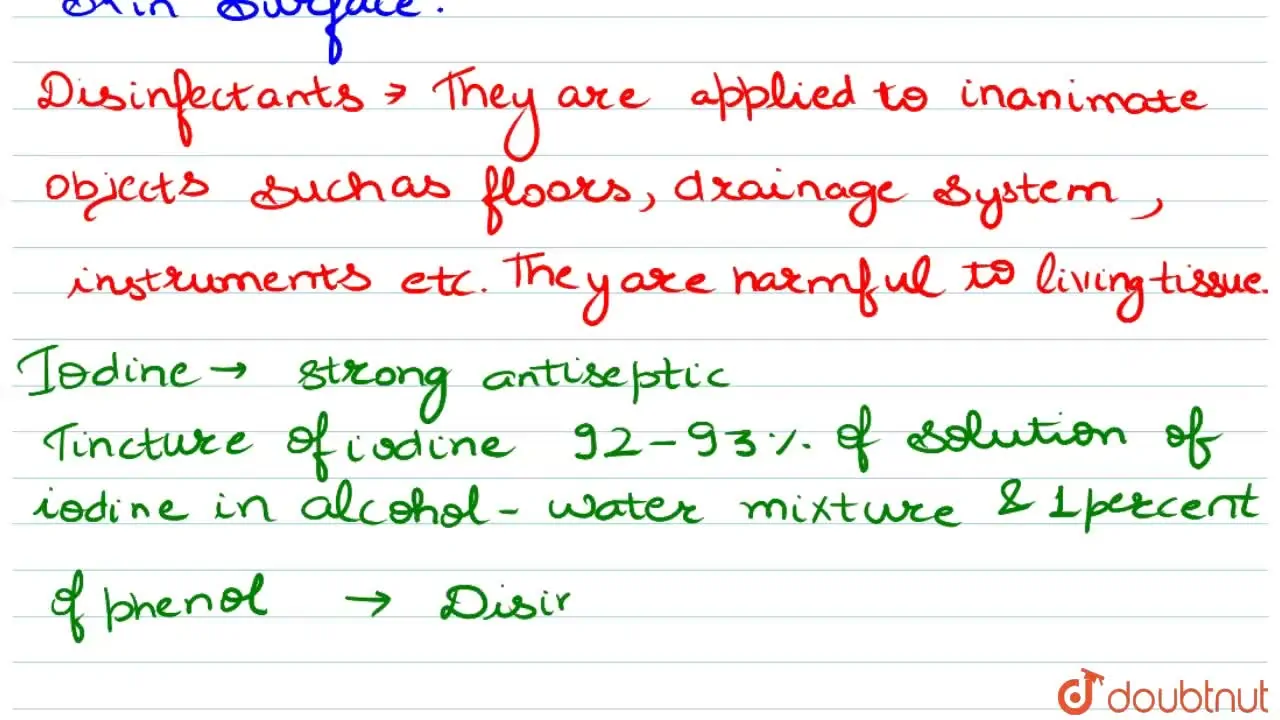 skin surface.
Disinfectants → They are applied to inanimate
objects such as floors, drainage system,
instruments etc. They are harmful to living tissue.
Iodine → strong antiseptic
Tincture of iodine 92-93% of solution of
iodine in alcohol - water mixture & 1 percent
of phenol → Disin
doubtnut